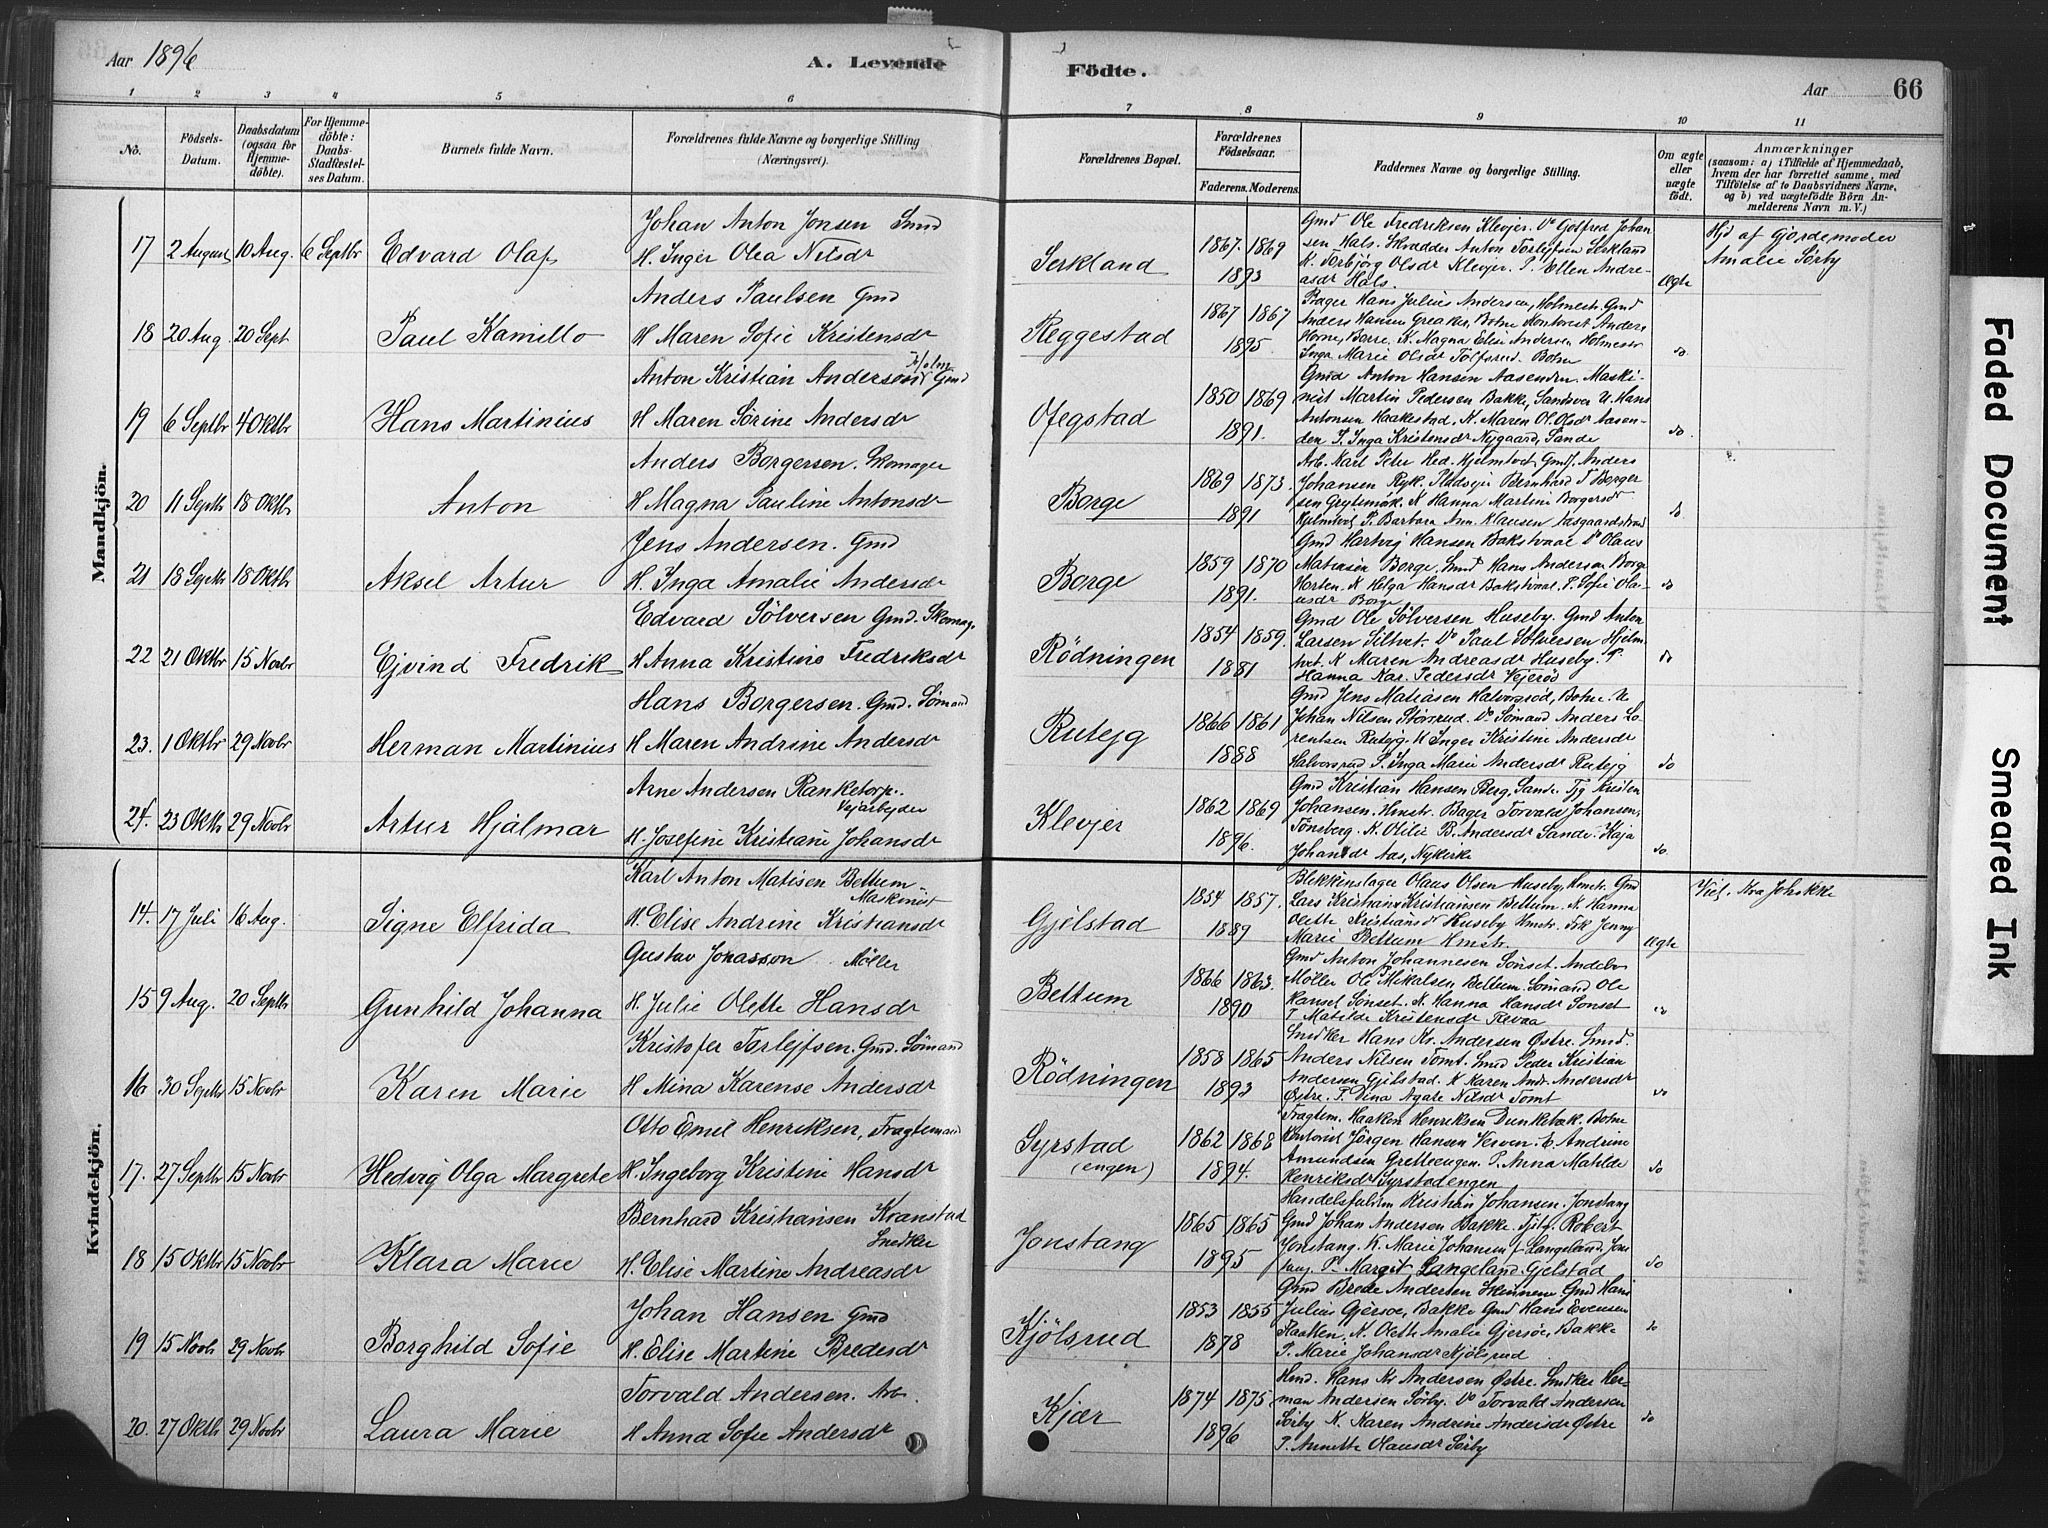 Aar 1896
A. Levende
Födte.
Aar
66
1 2 3 4 5 6 7 8 9 10 11
No.
Födsels-Datum.
Daabsdatum (ogsaa for Hjemme-döbte).
For Hjemme-döbte: Daabs-Stadfæstel-ses Datum.
Barnets fulde Navn.
Forældrenes fulde Navne og borgerlige Stilling (Næringsvei).
Forældrenes Bopæl.
Forældrenes Födselsaar.
Faderens. Moderens.
Faddernes Navne og borgerlige Stilling.
Om ægte eller uægte födt.
Anmærkninger (saasom: a) i Tilfælde af Hjemmedaab, hvem der har forrettet samme, med Tilföielse af to Daabsvidners Navne, og b) ved uægtefödte Börn Anmelderens Navn m. V.)
Mandkjön.
17 2 August 10 Aug. 6 Septbr Edvard Olaf
Johan Anton Jonsen Smd
H. Inger Olea Nilsdr
Serkland 1867. 1869 1893
Gmd Ole Fredriksen Klevjer. Do Golfred Johan
sen Hals. Skrædder Anton Torlejfsen Serkland
K. Torbjörg Olsdr Klevjer. P. Ellen Andre-
asdr Hals.
Ægte
Hjd af Gjordemoder
Amalie Sörby
18 20 Aug. 20 Sept Paul Kamillo
Anders Paulsen Gmd
H Maren Sofie Kristensdr
Reggestad 1867 1867 1895.
Bager Hans Julius Andersen, Holmestr. Gmd
Anders Hansen Greaker, Botne Kontorist Anders
Horne, Borre. K. Magna Elise Andersen Holmestr
Inga Marie Olsdr Tolfsrud. Botne
do
19 6 Septbr 4 Oktbr Hans Martinius
Anton Kristian Andersen Holm Gmd
H Maren Sörine Andersdr
Ofegstad 1850 1869 1891.
Gmd Anton Hansen Aasenden. Maski-
nist Martin Pedersen Bakke, Sandsvær U. Hans
Antonsen Haakestad. K. Maren Ol. Olsdr Aasen-
den P. Inga Kristensdr Nygaard, Sande
do.
20 11 Septbr 18 Oktbr Anton
Anders Borgersen. Skomager
H Magna Pauline Antonsdr
Borge 1869 1873. 1891
Arb. Karl Peter Hed. Hjelmtvet Gmd. Anders
Johansen Ryk. Pladsejer Bernhard T Borger
sen Grytemøk. K Hanna Martine Borgersdr
Hjelmtvet P. Barbara Ann. Klausen Aasgaardstrand
do
21 13 Septbr 18 Oktbr Aksel Artur
Jens Andersen. Gmd
H. Inga Amalie Andersdr
Borge 1859 1870 1891.
Gmd Hartvig Hansen Bakstvaal Do Olaus
Matiasen Borge. Smd Hans Anderson Borge
Horten. K Helga Hansdr Bakstvaal. P. Sofie Ola-
usdr Borge
do
22 21 Oktbr 15 Novbr Ejvind Fredrik
Edvard Sölversen Gmd. Skomag.
H Anna Kristine Fredriksdr
Rödningen 1854 1859. 1881
Gmd Ole Sölversen Huseby. Gmd Anton
Larsen Siltvet. Do Paul Sölversen Hjelm
tvet. K Maren Andreasdr Huseby. P.
Hanna Kar. Pedersdr Vejeröd
do
23. 1 Oktbr 29 Novbr Herman Martinius
Hans Borgersen. Gmd. Sömand
H Maren Andrine Andersdr
Rutejg 1866 1861 1888
Gmd Jens Matiasen Halvorsröd, Botne. U
Johan Nilsen Störsrud. Do Sömand Anders Lo-
rentsen Rutejg. K Inger Kristine Andersdr
Halvorsrud P. Inga Marie Andersdr Rutejg
do
24. 23 Oktbr 29 Novbr Artur Hjalmar
Arne Andersen Ranketorp.
Vejarbejder
H. Josefine Kristiane Johansdr
Klevjer 1862 1869 1896.
Gmd Kristian Hansen Berg. Sande. Tjg Kristen
Johansen. Hmstr. Bager Torvald Johansen,
Tönsberg. K. Otilie B. Andersdr Sande. Kaja
Johansdr Aas, Nykirke
do.
Kvindekjön.
14. 17 Juli 16 Aug. Signe Elfrida
Karl Anton Matisen Bettum-
Maskinist
H. Elise Andrine Kristiansdr
Gjelstad 1854 1857. 1889
Blikkenslager Olaus Olsen Huseby, Hmstr. Gmd
Lars Kristian Kristiansen Bettum. K Hanna
Olette Kristiansdr Huseby Hmstr. Frk Jenny
Marie Bettum Hmstr.
Ægte
15 9 Aug. 20 Septbr Gunhild Johanna
Gustav Jonasson. Möller
H. Julie Olette Hansdr
Bettum 1866 1863. 1890
Gmd Anton Johannesen Sönset. Andebo
Möller Ole Mikalsen Bettum. Sömand Ole
Hansen Sönset. K. Hanna Hansdr Sonset
P Matilde Kristensdr Revaa
do
16 30 Septbr 15 Novbr Karen Marie
Kristofer Torlejfsen. Gmd. Sömand
H Mina Karense Andersdr
Rödningen 1858 1865 1893
Snedker Hans Kr. Andersen Østre. Smd.
Anders Nilsen Tomt. Smd Peder Kristian
Andersen Gjelstad. K Karen Andr. Andersdr
Østre. P. Dina Agate Nilsdr Tomt
do
17. 27 Septbr 15 Novbr Hedvig Olga Margrete
Otto Emil Henriksen, Fragtemand
H. Ingeborg Kristine Hansdr
Syrstad (engen) 1862 1868 1894.
Fragtem. Haakon Henriksen Dunkebæk. Botne
Kontorist Jörgen Hansen Verven. K. Andrine
Amundsen Gretteengen. P. Anna Matilde
Henriksdr Syrstadengen
do
18 15 Oktbr 15 Novbr Klara Marie
Bernhard Kristiansen Kvanstad
Snedker
H. Elise Martine Andreasdr
Jonstang 1865 1865 1895
Handelsfuldm Kristian Johansen. Jonstang
Gmd Johan Andersen Bakke. Robert
Jonstang. K. Marie Johansen f Langeland. Jons
tang. P. Margit Langeland. Gjelstad
do
19 15 Novbr 29 Novbr Borghild Sofie
Johan Hansen Gmd
H. Elise Martine Bredesdr
Kjölsrud 1853 1855 1878
Gmd Brede Andersen Skinnene Gmd Hans
Julius Gjersoe, Bakke Gmd Hans Evensen
Haaken. K. Olette Amalie Gjersöe, Bakke
P. Marie Johansdr Kjölsrud
do
20. 27 Oktbr 29 Novbr Laura Marie
Torvald Andersen. Arb.
H Anna Sofie Andersdr
Kjær 1874 1875 1896
Smd. Hans Kr Andersen Østre. Smdker Her-
man Andersen Sörby. Do Torvald Andersen
Sörby K. Karen Andrine Andersdr Østre
P. Annette Olausdr Sörby
do
Faded Document
Smeared Ink